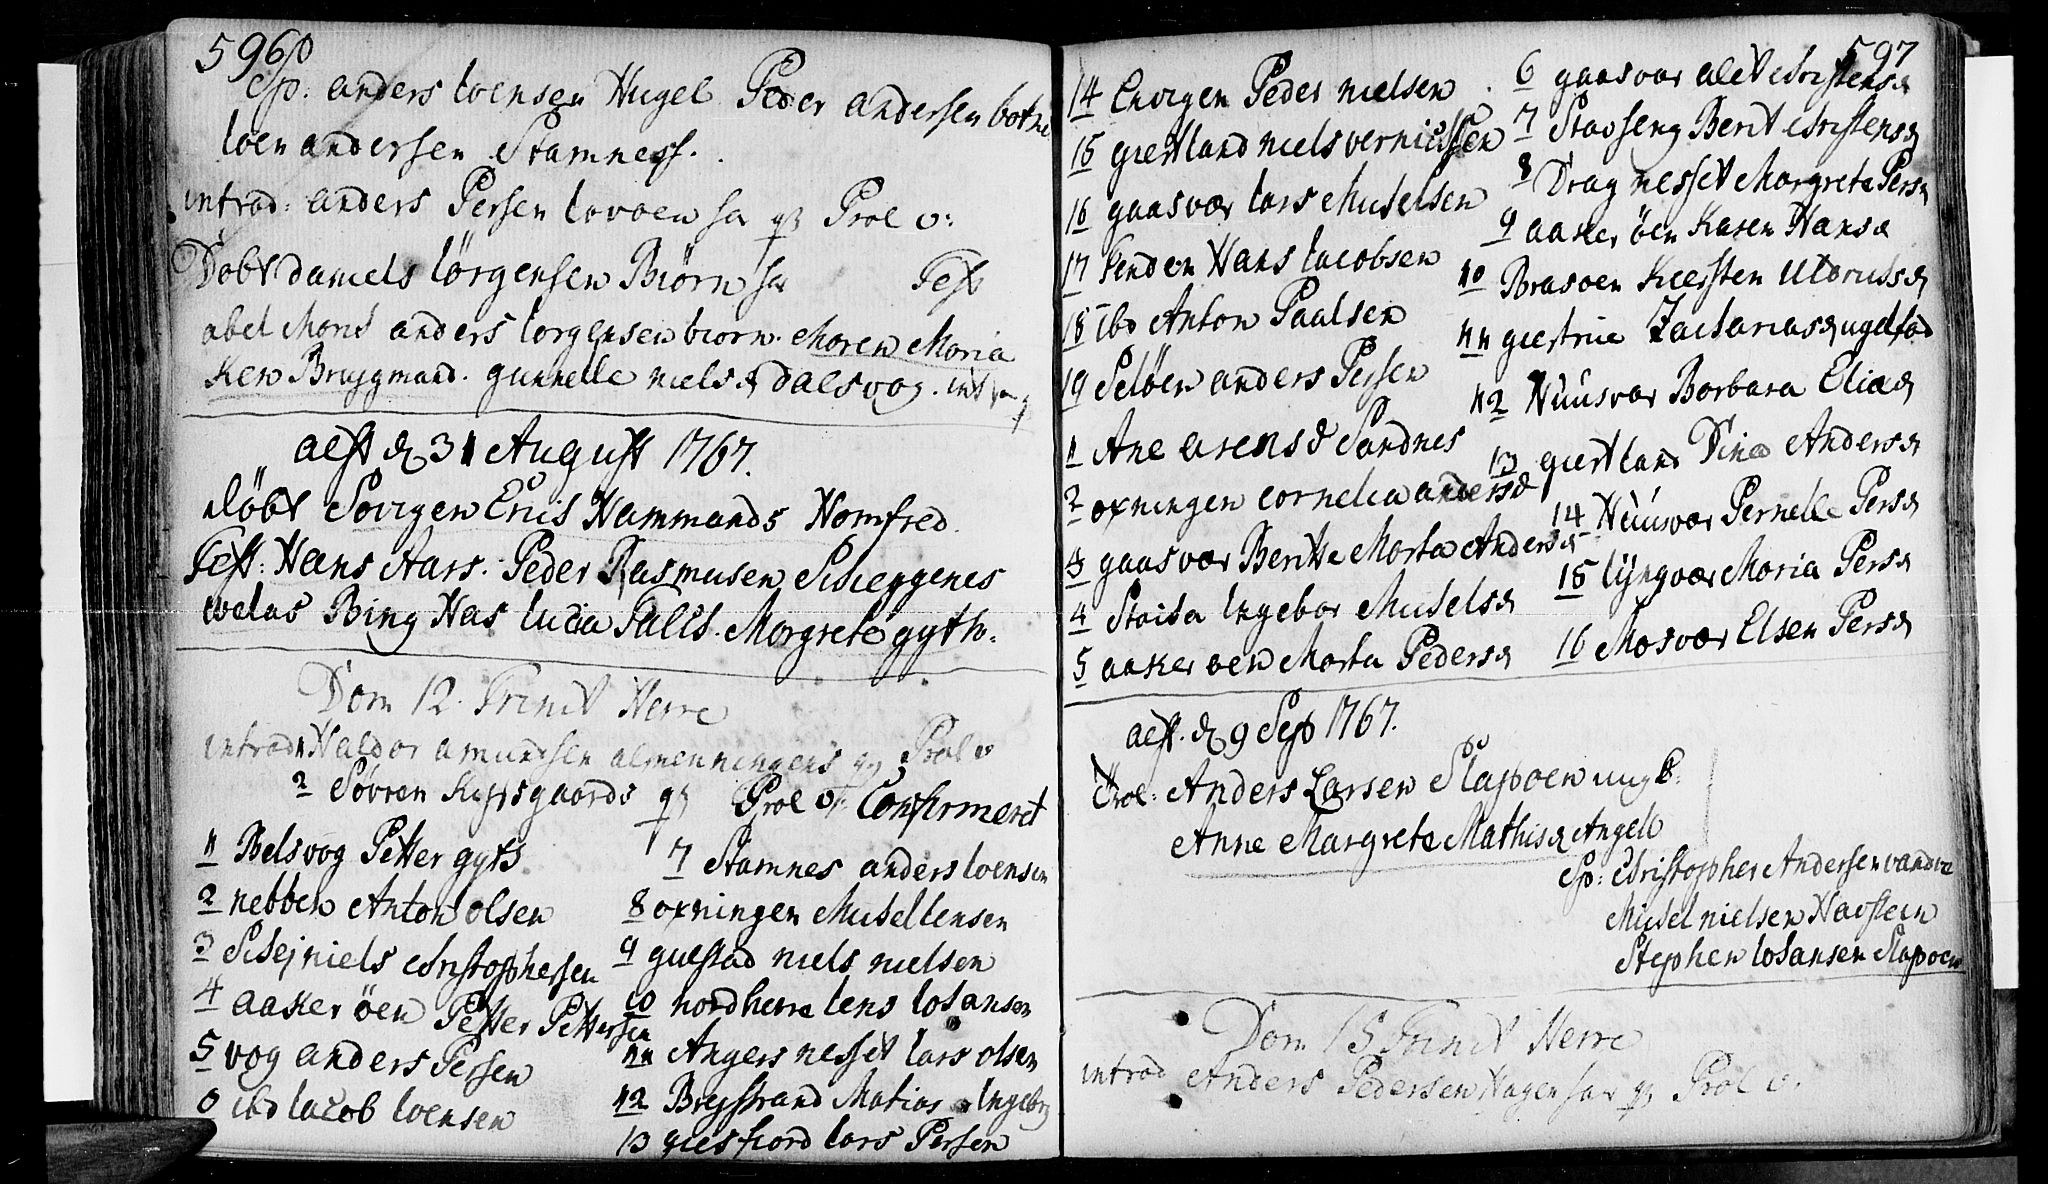 596
Sp: anders Joensen Hugel Peder andersen botn
Joen andersen Stamness.
introd: anders Persen Lovoen har qz Prol v:
Døbt daniels Jørgensen Biørn har Test
abel Moris anders Jorgensen biorn. Maren Maria
Ken Bruggmand. gunnelle nielsd dalsvog. int
aest d 31 August 1767.
døbt Sovigen Eric Hammands Homfred
Test: Hans Aars. Peder Rasmusen Scheggenes
welas Bing Has Lucia Falls. Margrete gyth.
Dom 12. Trinit Herre
introd 1 Haldor amundsen almenningens qz Prol v
2 Søvren Kyssgaards qz Prol v: Confirmeret
1 Belsvog Petter gyts
2 nebben Anton olsen
3 Schej niels christophersen
4 aaker øen Petter Pettersen
5 vog anders Persen
6 ibd Jacob Joensen
7 Stamnes anders Joensen
8 oxningen Michel Jensen
9 guestad niels nielsen
10 nordherre Jens Johansen
11 Angersnesset Lars olsen
12 Breystrand Matias Ingebr
13 giesfiord Lars Persen
597
14 Envigen Peder nielsen
15 giertland niels vernichsen
16 gaasvær Lars Michelsen
17 Hans Jacobsen
18 ibd Anton Paalsen
19 Seløen anders Persen
1 Ane arensd Sandnes
2 oxningen cornelia andersd
3 gaasvær Berithe Marta Andersd
4 Staisa Ingebor Michelsd
5 aaker øen Marta Pedersd
6 gaasvær alet christensd
7 Stavseng Berit christensd
8 Dragnesset Margrete Persd
9 aaker øen Karen Hansd
10 Brasoen Kiersten Uldrichsd
11 giertrue Zachariasd ugelstad
12 Huusvær Barbara Eliæd
13 giertland Dina Andersd
14 Huusvær Pernelle Persd
15 lyngvær Maria Persd
16 Mosvær Elsen Persd
aest. d 9 Sep 1767.
Trol: Anders Larsen Slapoen ung k:
Anne Margrete Mathisd Angell
Sp: Christopher Andersen vandve
Michel nielsen Havstein
Stephen Johansen Slapoen
Dom 15 Trinit Herre
introd Anders Pedersen Hagen har qz Prol v.